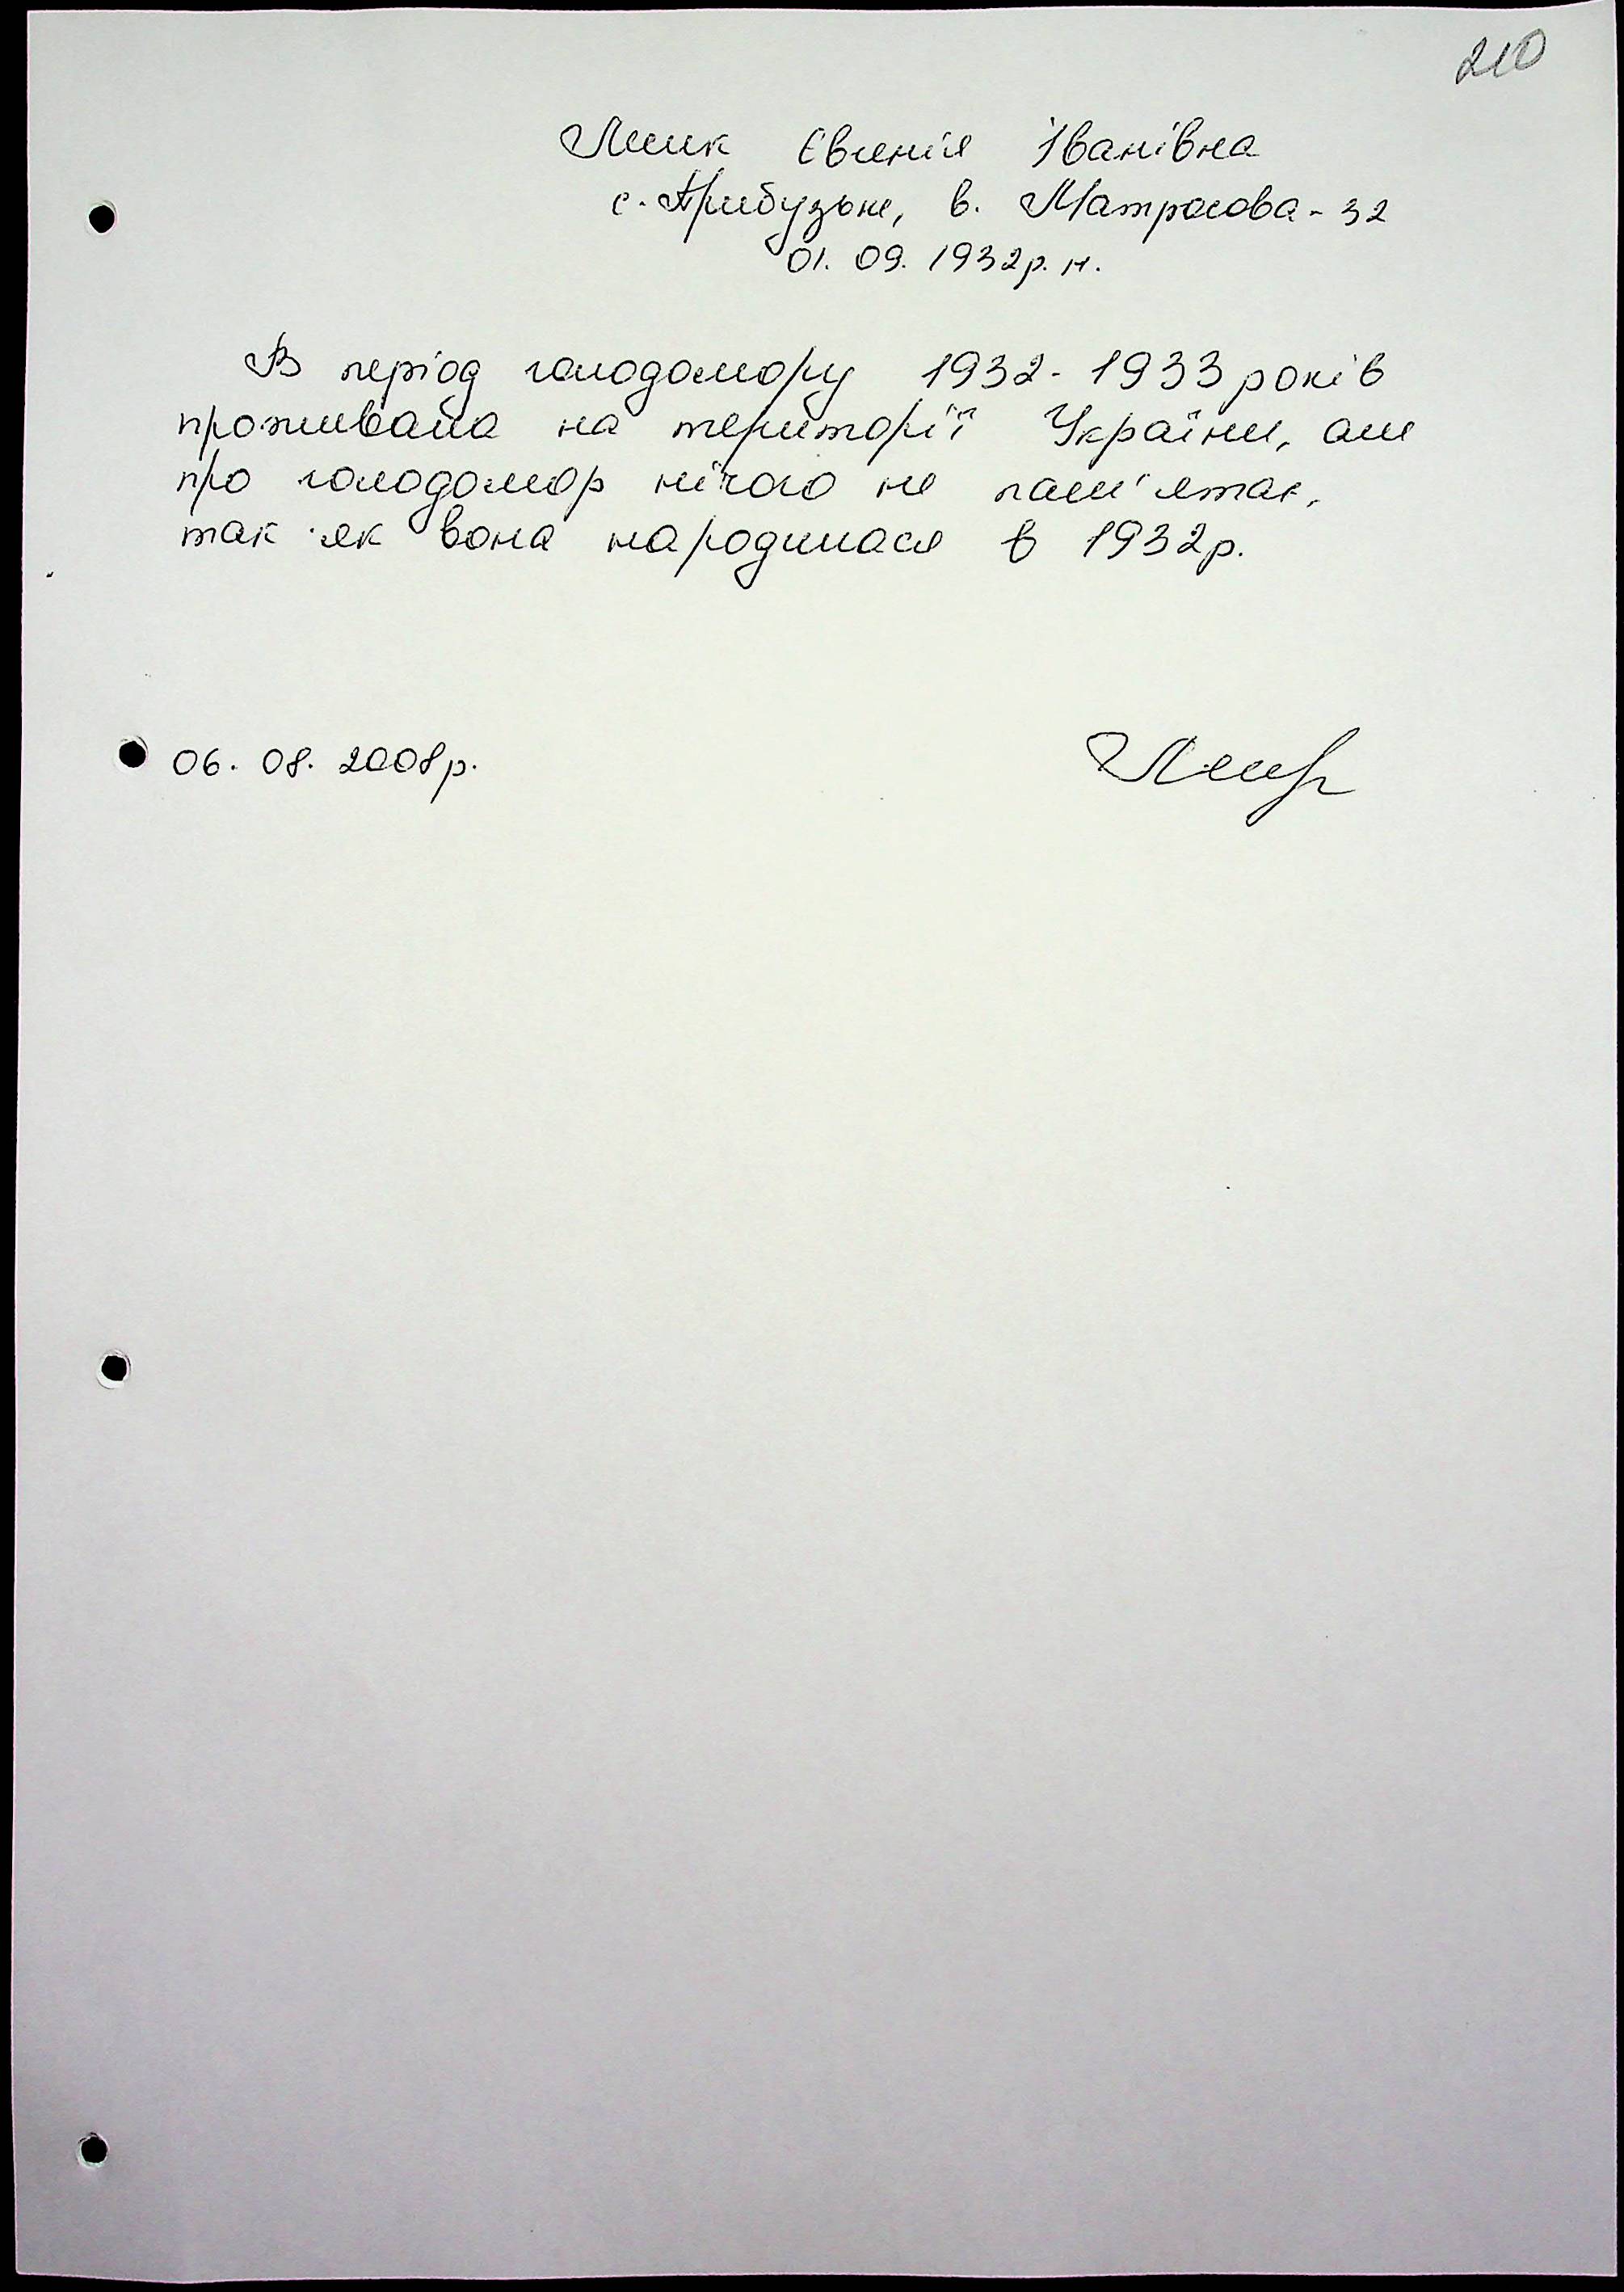 210
Лиик Євгенія Іванівна
с. Прибузьке, в. Матросова - 32
01. 09. 1932 р. н.
В період голодомору 1932 - 1933 років
проживала на території України, але
про голодомор нічого не пам'ятає,
так як вона народилася в 1932 р.
06. 08. 2008 р.